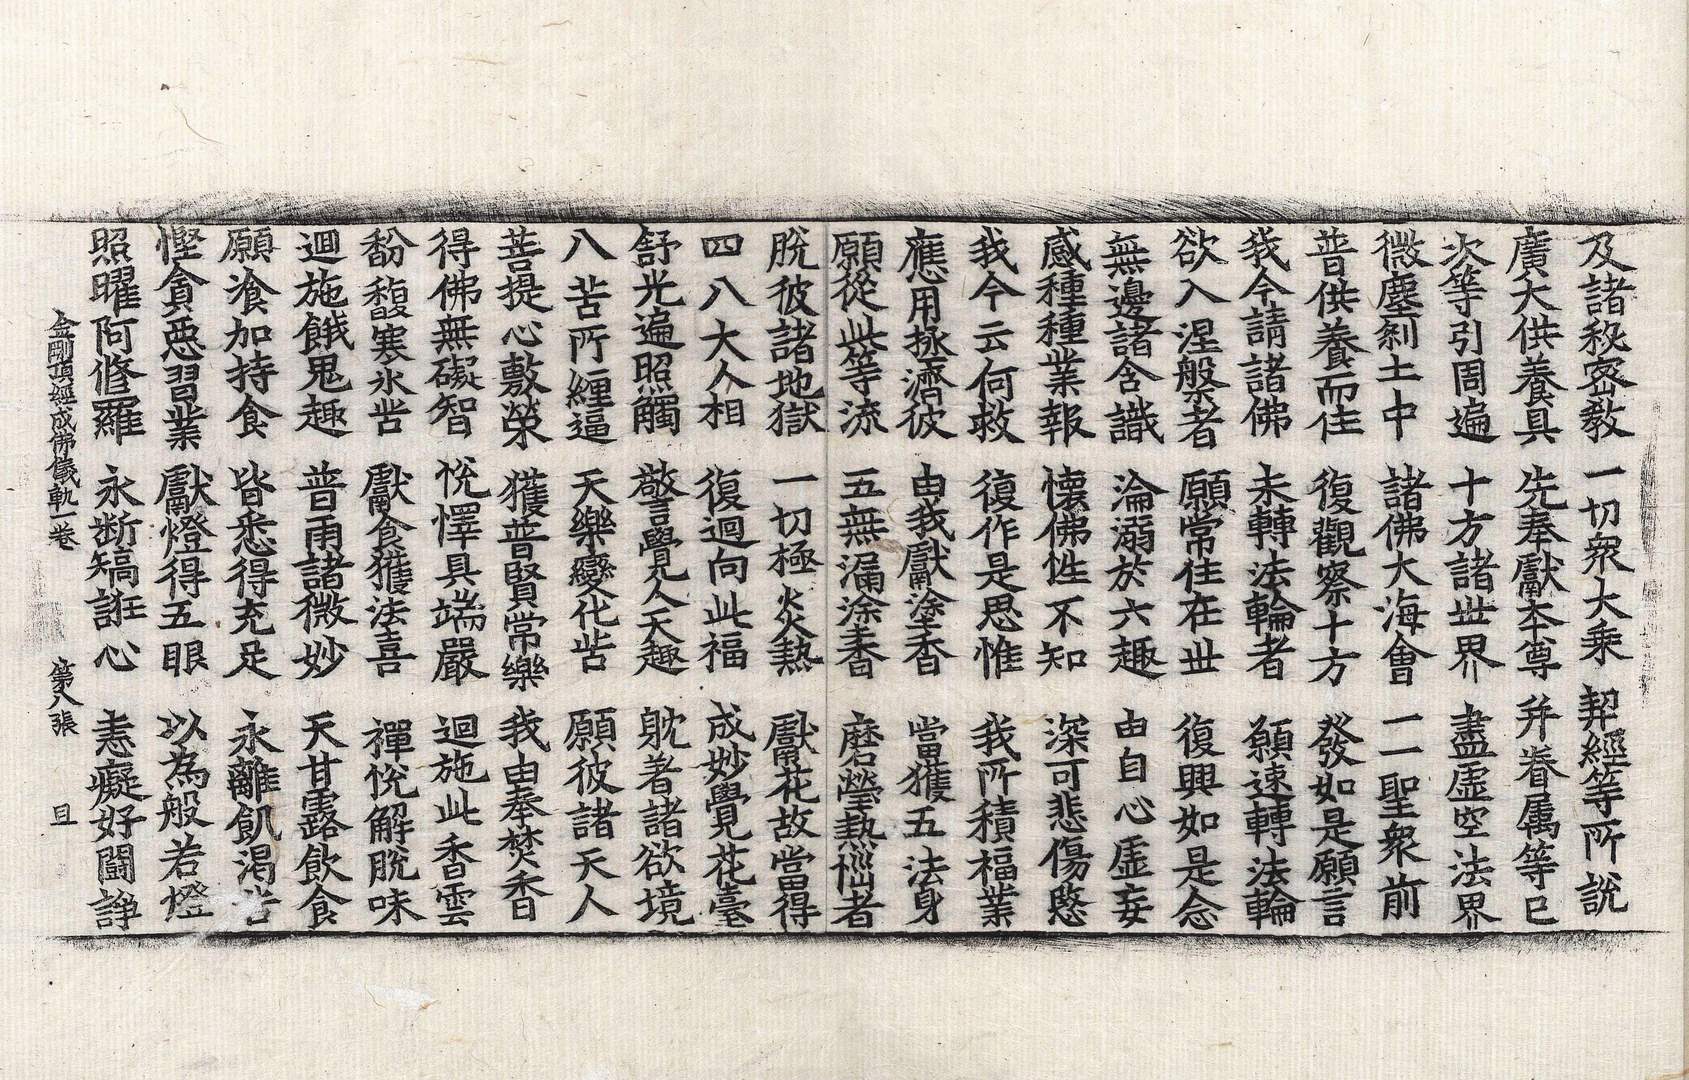 及諸秘密教 一切衆大乘 契經等所説
廣大供養具 先奉獻本尊 并眷属等已
次等引周遍 十方諸世界 盡虛空法界
微塵剎土中 諸佛大海會 一一聖衆前
普供養而住 復觀察十方 發如是願言
我今請諸佛 未轉法輪者 願速轉法輪
欲入涅槃者 願常住在世 復興如是念
無邊諸含識 淪溺於六趣 由自心虛妄
感種種業報 懷佛性不知 深可悲傷愍
我今云何救 復作是思惟 我所積福業
應用拯濟彼 由我獻塗香 當獲五法身
願從此等流 五無漏塗香 磨瑩熱惱者
脫彼諸地獄 一切極炎熱 獻花故當得
四八大人相 復迴向此福 成妙覺花臺
舒光遍照觸 警覺人天趣 躭著諸欲境
八苦所纏逼 天樂變化苦 願彼諸天人
菩提心敷榮 獲普賢常樂 我由奉焚香
得佛無礙智 悅懌具端嚴 迴施此香雲
馚馥寒氷苦 獻食獲法喜 禪悅解脫味
迴施餓鬼趣 普雨諸微妙 天甘露飲食
願飡加持食 皆悉得充足 永離飢渴苦
慳貪惡習業 獻燈得五眼 以為般若燈
照曜阿修羅 永斷矯誑心 恚癡好鬪諍
金剛頂經成佛儀軌一卷 第八張 旦